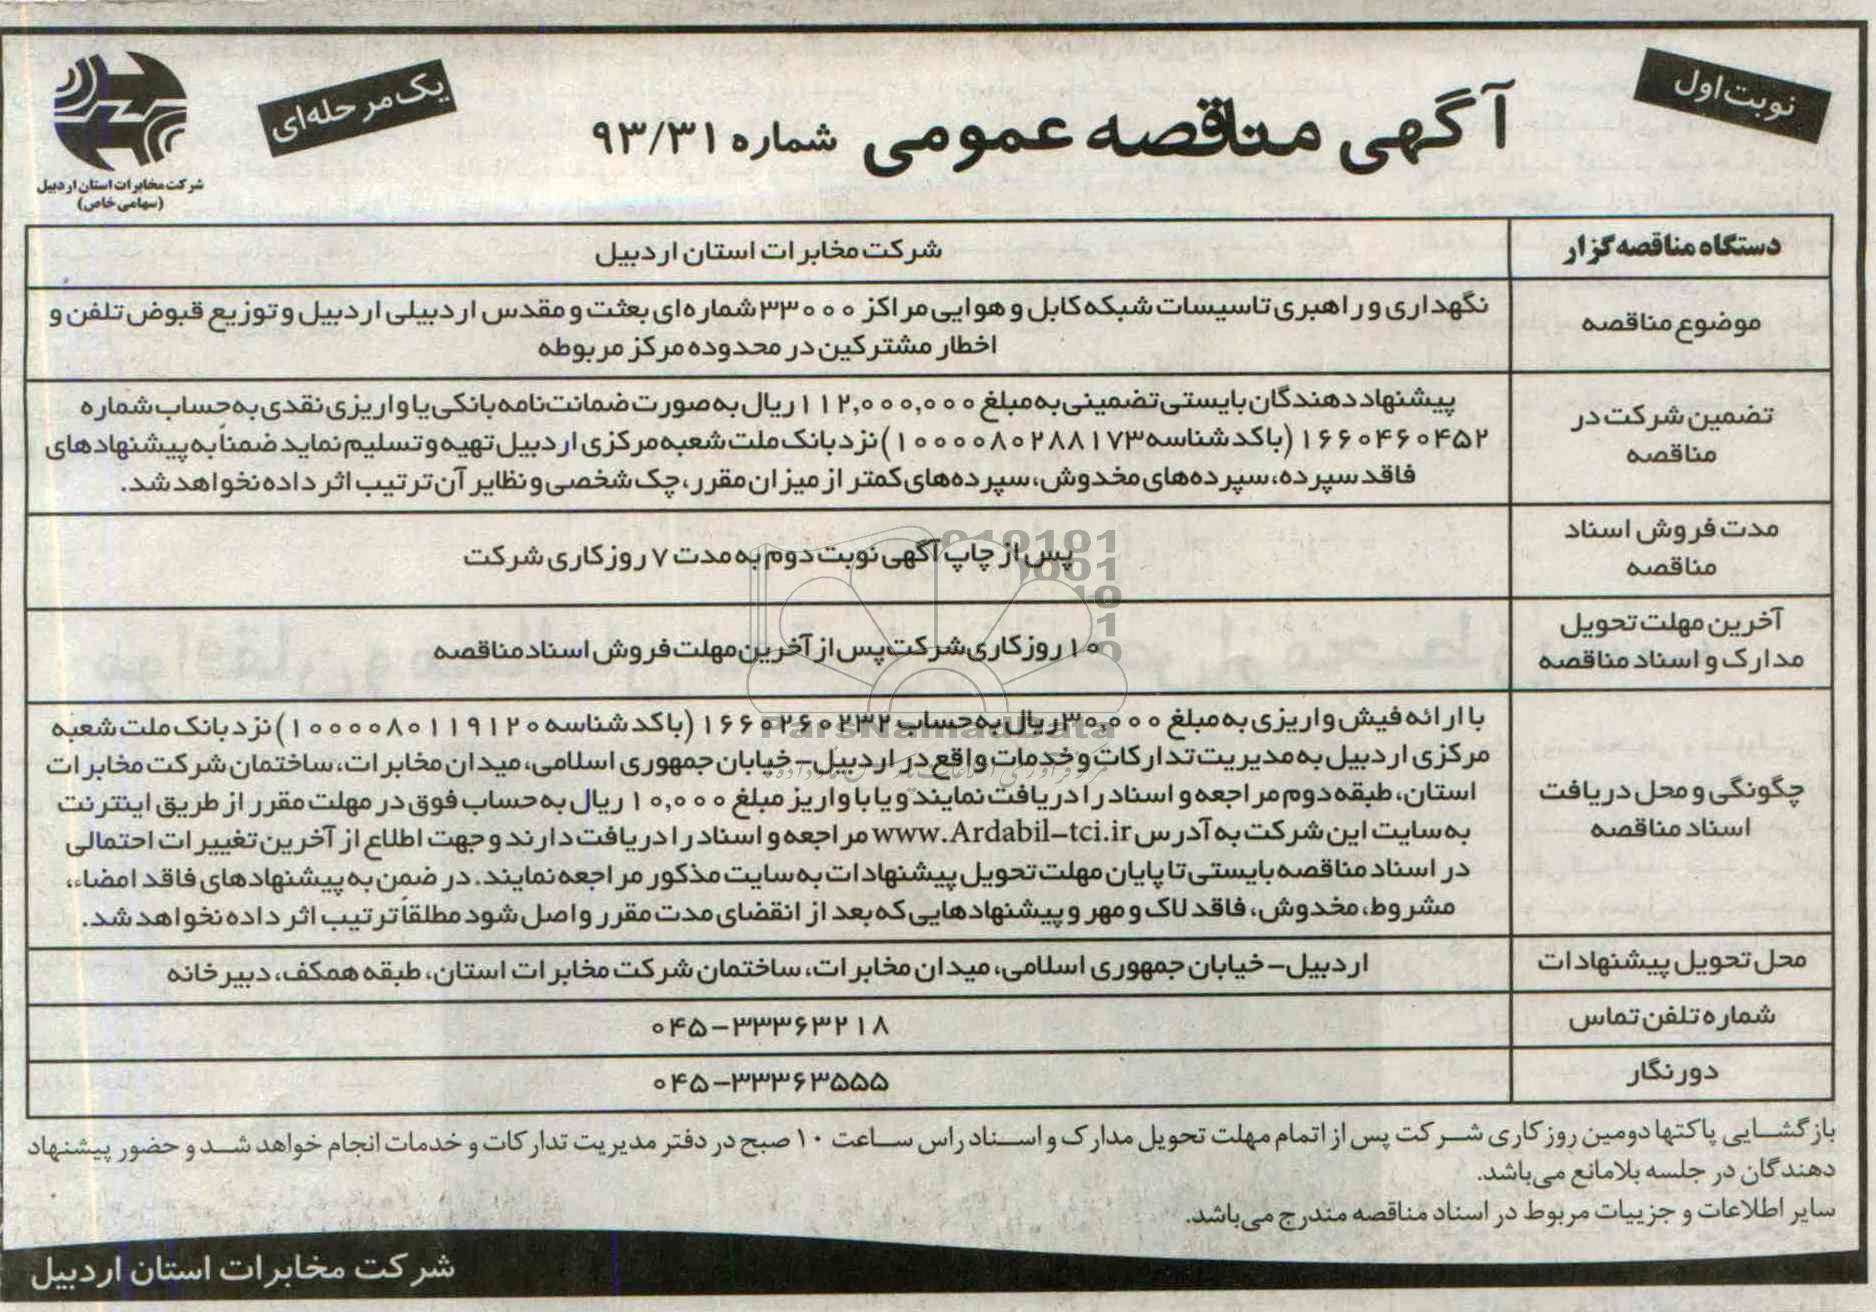 نوبت اول
آگهی مناقصه عمومی شماره ۹۳/۳۱
یک مرحله‌ای
شرکت مخابرات استان اردبیل
(سهامی خاص)
دستگاه مناقصه گزار
شرکت مخابرات استان اردبیل
موضوع مناقصه
نگهداری و راهبری تاسیسات شبکه کابل و هوایی مراکز ۳۳۰۰۰ شماره‌ای بعثت و مقدس اردبیلی اردبیل و توزیع قبوض تلفن و
اخطار مشترکین در محدوده مرکز مربوطه
تضمین شرکت در
مناقصه
پیشنهاد دهندگان بایستی تضمینی به مبلغ ۱۱۲,۰۰۰,۰۰۰ ریال به صورت ضمانت نامه بانکی یا واریزی نقدی به حساب شماره
۱۶۶۰۴۶۰۴۵۲ (با کد شناسه ۱۰۰۰۰۸۰۲۸۸۱۷۳) نزد بانک ملت شعبه مرکزی اردبیل تهیه و تسلیم نماید ضمناً به پیشنهادهای
فاقد سپرده، سپرده‌های مخدوش، سپرده‌های کمتر از میزان مقرر، چک شخصی و نظایر آن ترتیب اثر داده نخواهد شد.
مدت فروش اسناد
مناقصه
پس از چاپ آگهی نوبت دوم به مدت ۷ روز کاری شرکت
آخرین مهلت تحویل
مدارک و اسناد مناقصه
۱۰ روز کاری شرکت پس از آخرین مهلت فروش اسناد مناقصه
چگونگی و محل دریافت
اسناد مناقصه
با ارائه فیش واریزی به مبلغ ۳۰,۰۰۰ ریال به حساب ۱۶۶۰۲۶۰۲۳۲ (با کد شناسه ۱۰۰۰۰۸۰۱۱۹۱۲۰) نزد بانک ملت شعبه
مرکزی اردبیل به مدیریت تدارکات و خدمات واقع در اردبیل– خیابان جمهوری اسلامی، میدان مخابرات، ساختمان شرکت مخابرات
استان، طبقه دوم مراجعه و اسناد را دریافت نمایند و یا با واریز مبلغ ۱۰,۰۰۰ ریال به حساب فوق در مهلت مقرر از طریق اینترنت
به سایت این شرکت به آدرس www.Ardabil–tci.ir مراجعه و اسناد را دریافت دارند و جهت اطلاع از آخرین تغییرات احتمالی
در اسناد مناقصه بایستی تا پایان مهلت تحویل پیشنهادات به سایت مذکور مراجعه نمایند. در ضمن به پیشنهادهای فاقد امضاء،
مشروط، مخدوش، فاقد لاک و مهر و پیشنهادهایی که بعد از انقضای مدت مقرر واصل شود مطلقاً ترتیب اثر داده نخواهد شد.
محل تحویل پیشنهادات
اردبیل– خیابان جمهوری اسلامی، میدان مخابرات، ساختمان شرکت مخابرات استان، طبقه همکف، دبیرخانه
شماره تلفن تماس
۰۴۵–۳۳۳۶۳۲۱۸
دورنگار
۰۴۵–۳۳۳۶۳۵۵۵
بازگشایی پاکتها دومین روز کاری شرکت پس از اتمام مهلت تحویل مدارک و اسناد راس ساعت ۱۰ صبح در دفتر مدیریت تدارکات و خدمات انجام خواهد شد و حضور پیشنهاد
دهندگان در جلسه بلامانع می‌باشد.
سایر اطلاعات و جزییات مربوط در اسناد مناقصه مندرج می‌باشد.
شرکت مخابرات استان اردبیل
ParsNamadData